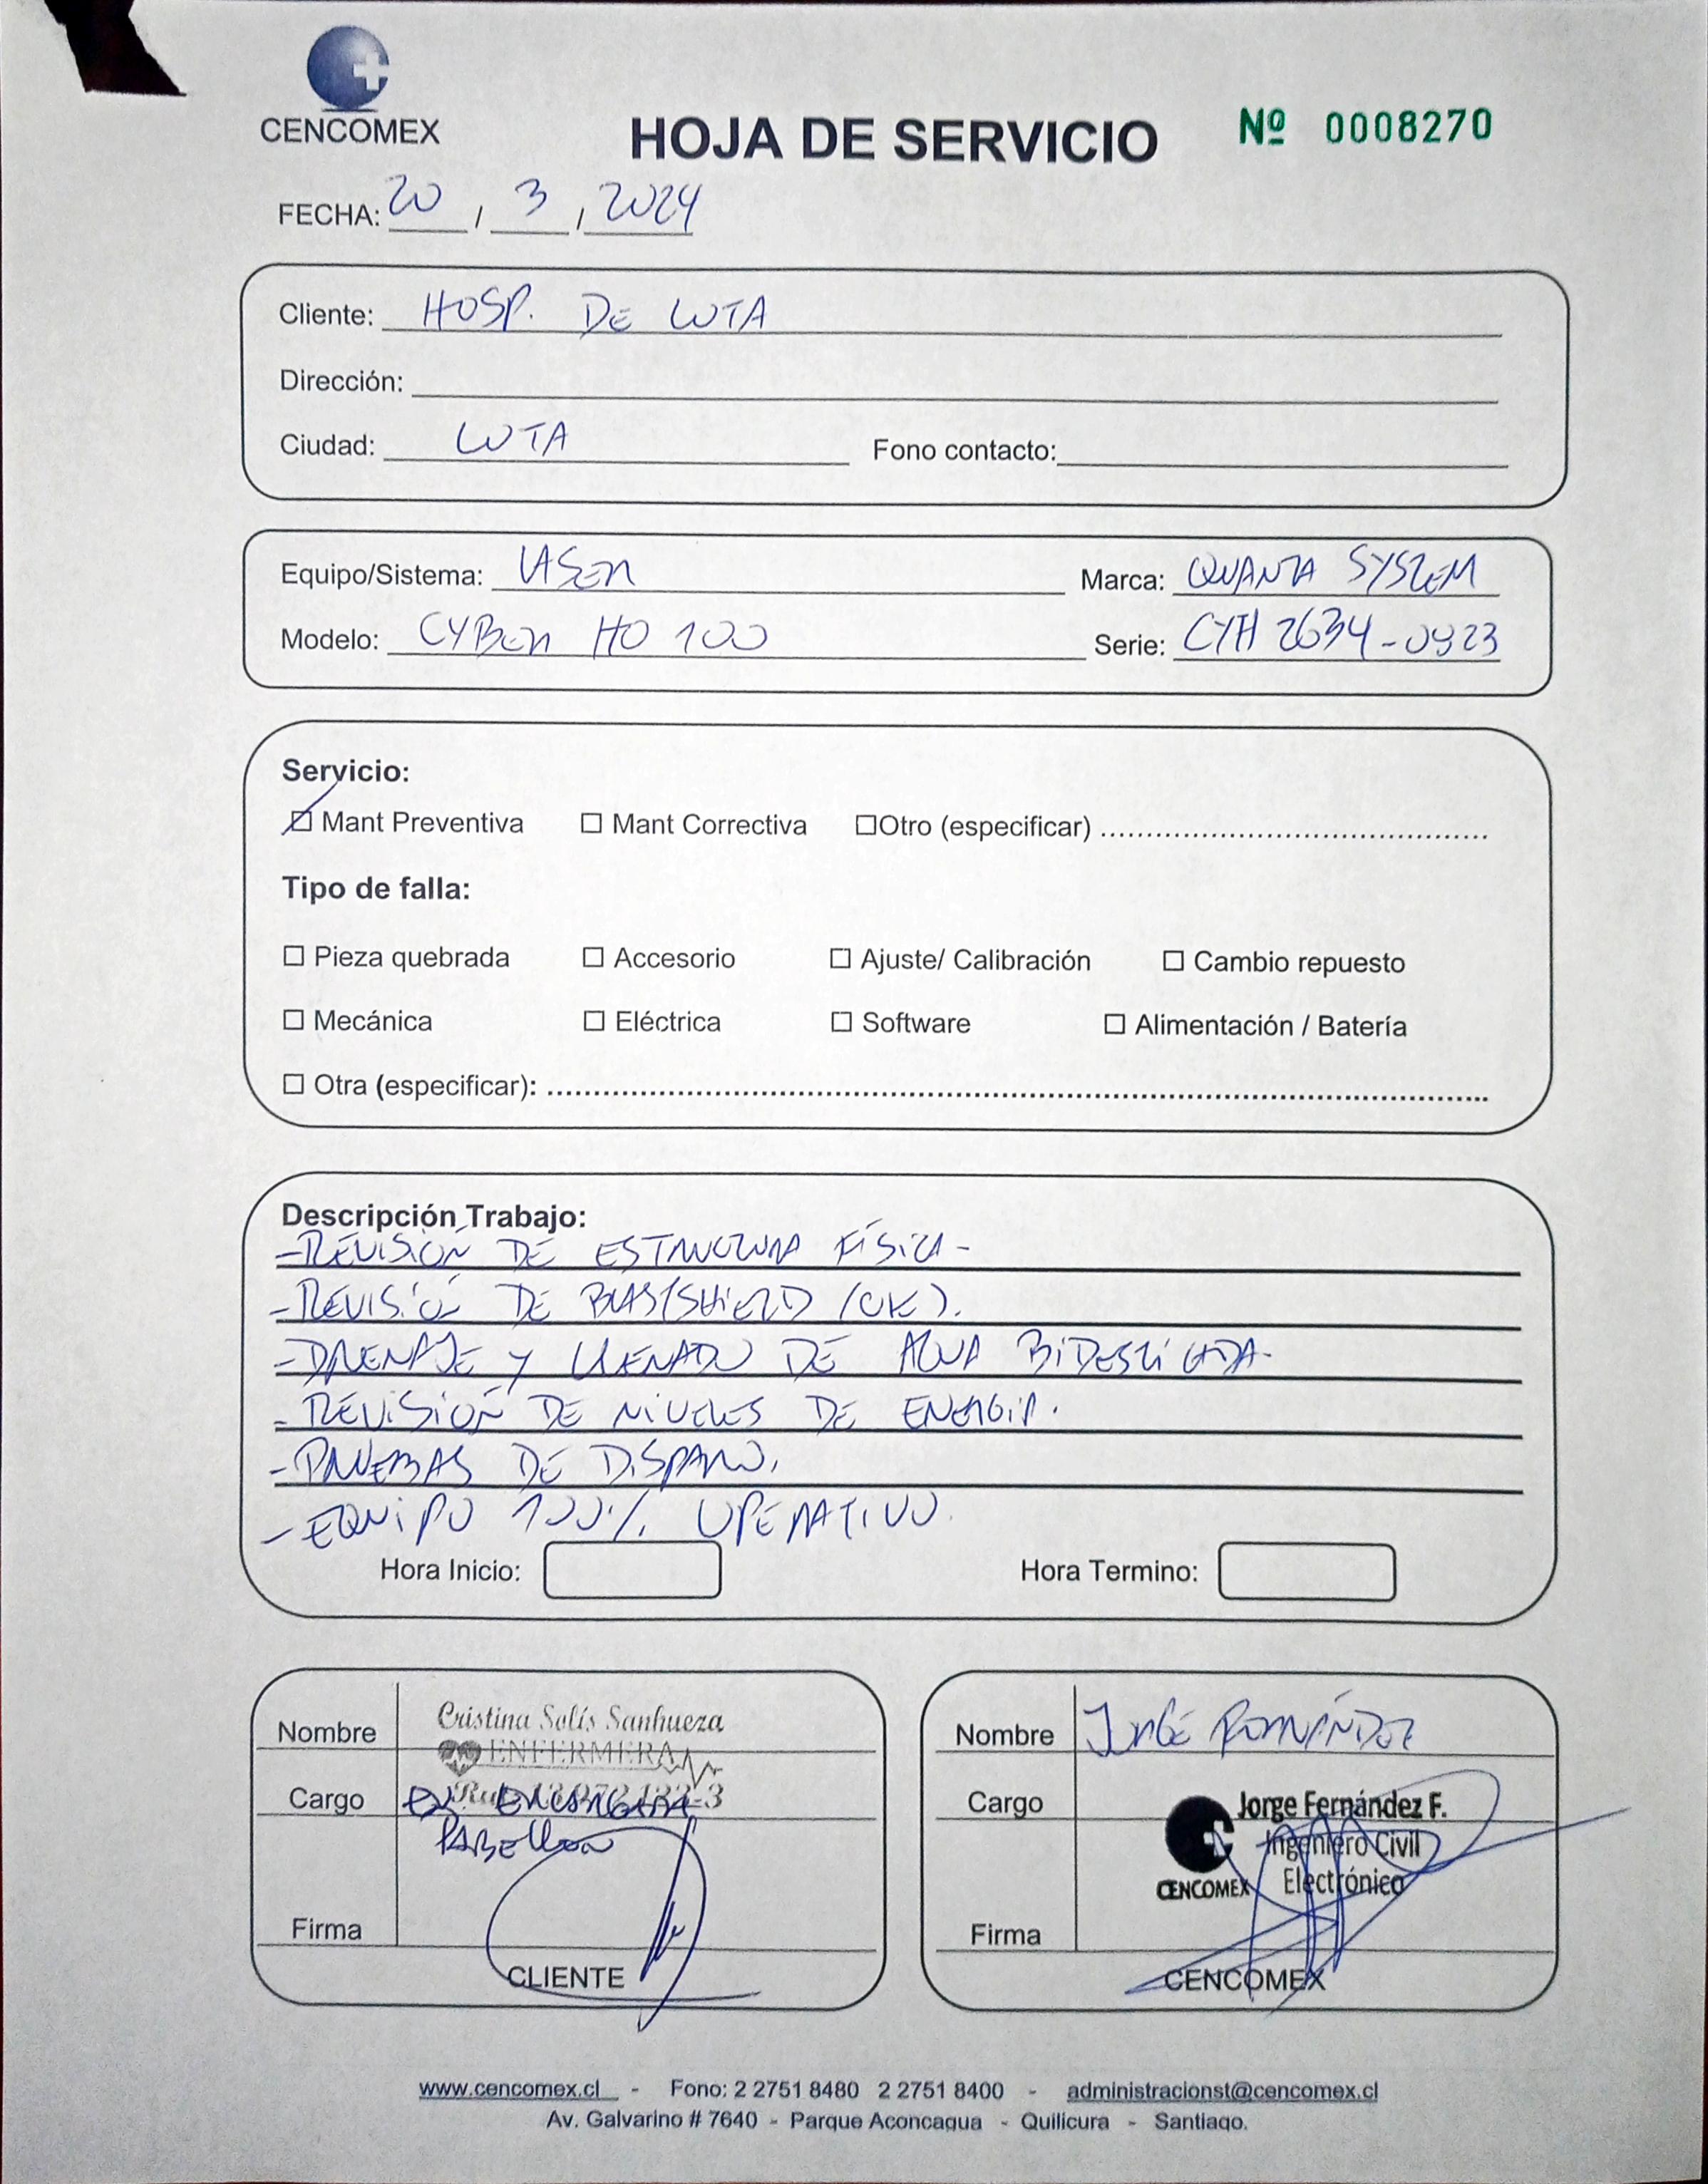 CENCOMEX
HOJA DE SERVICIO
Nº 0008270
FECHA: 20 / 3 / 2024
Cliente: HOSP. DE LOTA
Dirección:
Ciudad: LOTA Fono contacto:
Equipo/Sistema: LASER Marca: QUANTA SYSTEM
Modelo: CYBER HO 100 Serie: CYH 2634-0923
Servicio:
Mant Preventiva Mant Correctiva Otro (especificar)
Tipo de falla:
Pieza quebrada Accesorio Ajuste/ Calibración Cambio repuesto
Mecánica Eléctrica Software Alimentación / Batería
Otra (especificar):
Descripción Trabajo:
- REVISIÓN DE ESTRUCTURA FÍSICA-
- REVISIÓN DE BLASTSHIELD (OK).
- DRENAJE Y LLENADO DE AGUA BIDESTILADA-
- REVISIÓN DE NIVELES DE ENERGIA.
- PRUEBAS DE DISPARO.
- EQUIPO 100% OPERATIVO.
Hora Inicio: Hora Termino:
Nombre Cristina Solís Sanhueza
ENFERMERA
Cargo ENCARGADA
PABELLON
Firma
CLIENTE
Nombre JORGE FERNÁNDEZ
Cargo Jorge Fernández F.
Ingeniero Civil
CENCOMEX Electrónico
Firma
CENCOMEX
www.cencomex.cl - Fono: 2 2751 8480 2 2751 8400 - administracionst@cencomex.cl
Av. Galvarino # 7640 - Parque Aconcagua - Quilicura - Santiago.